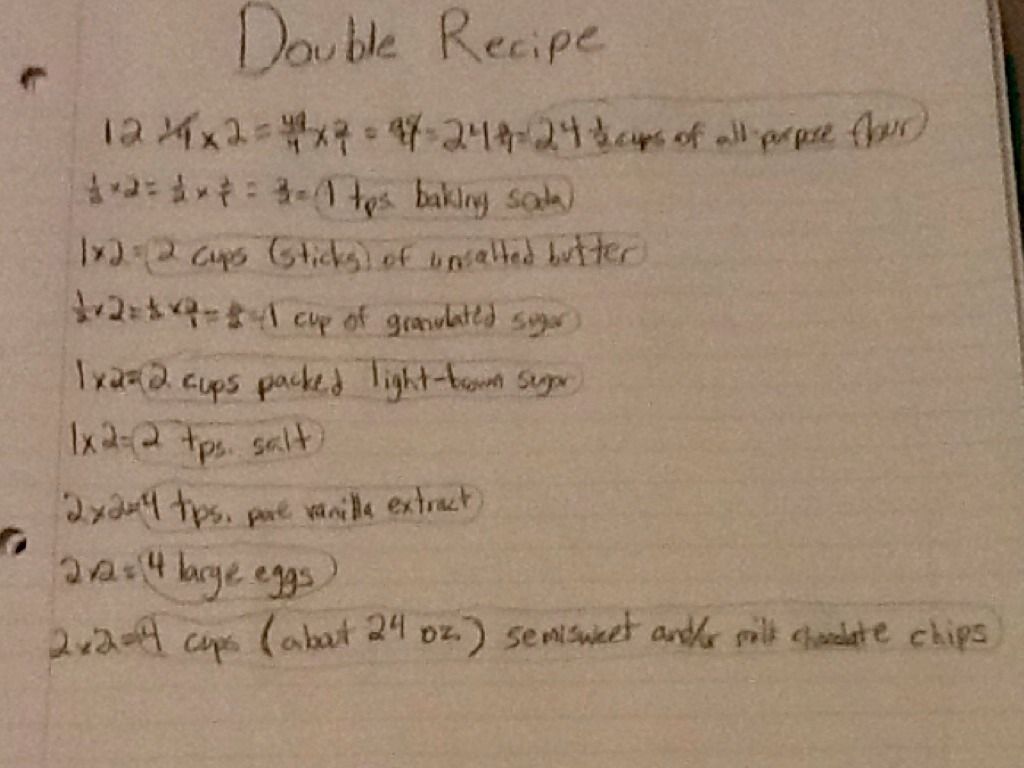 Double Recipe
12 1/4 x 2 = 49/4 x 2/1 = 98/4 = 24 2/4 = 24 1/2 cups of all-purpose flour
1/2 x 2 = 1/2 x 2/1 = 2/2 = 1 tps. baking soda
1 x 2 = 2 cups (sticks) of unsalted butter
1/2 x 2 = 1/2 x 2/1 = 2/2 = 1 cup of granulated sugar
1 x 2 = 2 cups packed light-brown sugar
1 x 2 = 2 tps. salt
2 x 2 = 4 tps. pure vanilla extract
2 x 2 = 4 large eggs
2 x 2 = 4 cups (about 24 oz.) semisweet and/or milk chocolate chips